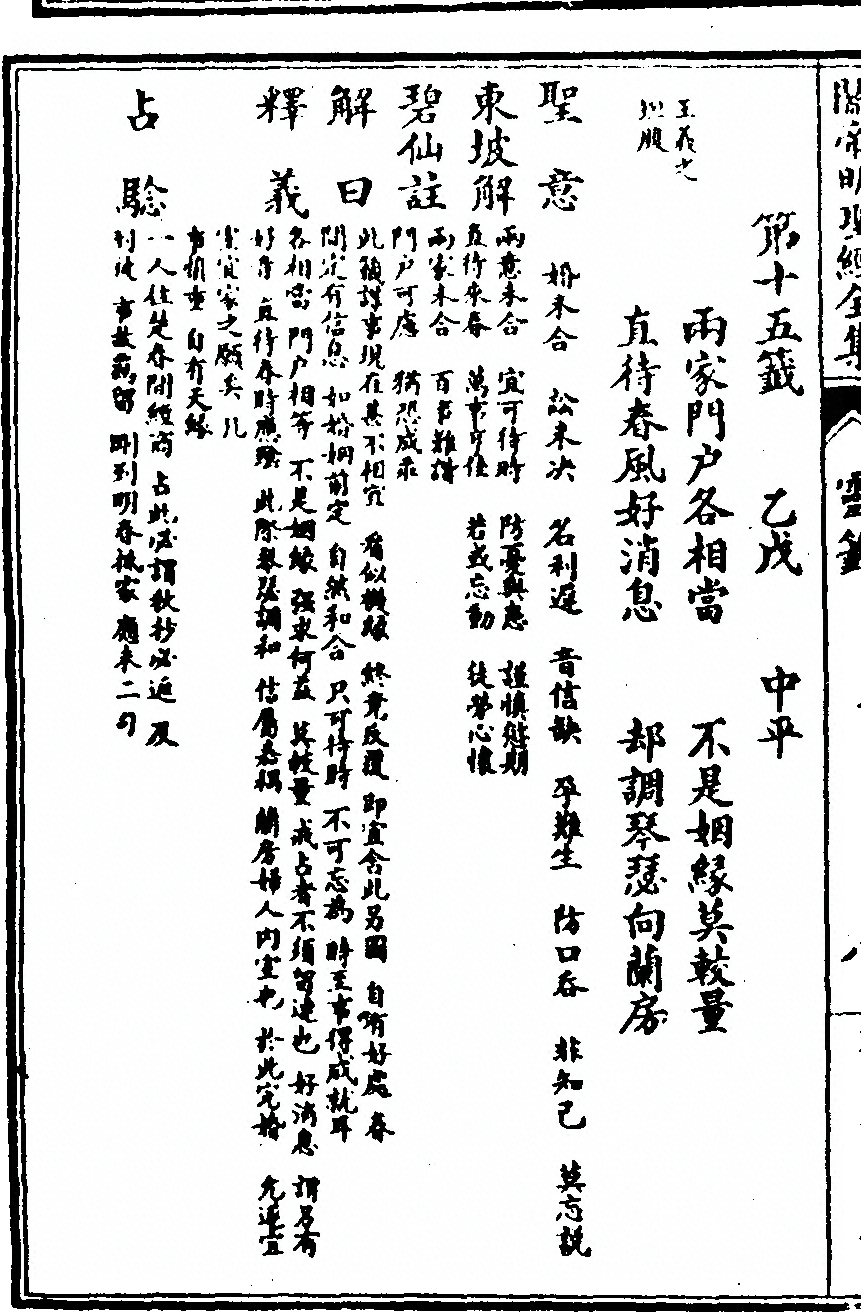 關帝明聖經全集　靈籤
第十五籤　乙戊　中平
兩家門户各相當　不是姻緣莫較量
直待春風好消息　却調琴瑟向蘭房
王羲之
坦腹
聖意　婚未合　訟未决　名利遲　音信缺　孕難生　防口舌　非知己　莫忘説
東坡解　兩意未合　宜可待時　防憂與患　謹慎愆期
直待來春　萬事可佳　若或忘動　徒勞心懷
碧仙註　兩家未合　百事難諧
門户可慮　猶恐成乖
解曰　此籤謀事現在甚不相宜　看似機緣　終章反覆　即宜舍此另圖　自有好處　春
間定有信息　如婚姻前定　自然和合　只可待時　不可忘為　時至事得成就耳
釋義　各相當　門户相等　不是姻緣　强求何益　莫較量　戒占者不須留連也　好消息　謂另有
好音　直待春時應驗　此際琴瑟調和　信屬嘉耦　蘭房婦人内室也　於此完婚　允進宜
室宜家之願矣　凡
事慎重　自有天緣
占驗　一人往楚春間經商　占此决謂秋杪必返　及
到彼　事故羈留　延到明春抵家　應末二句